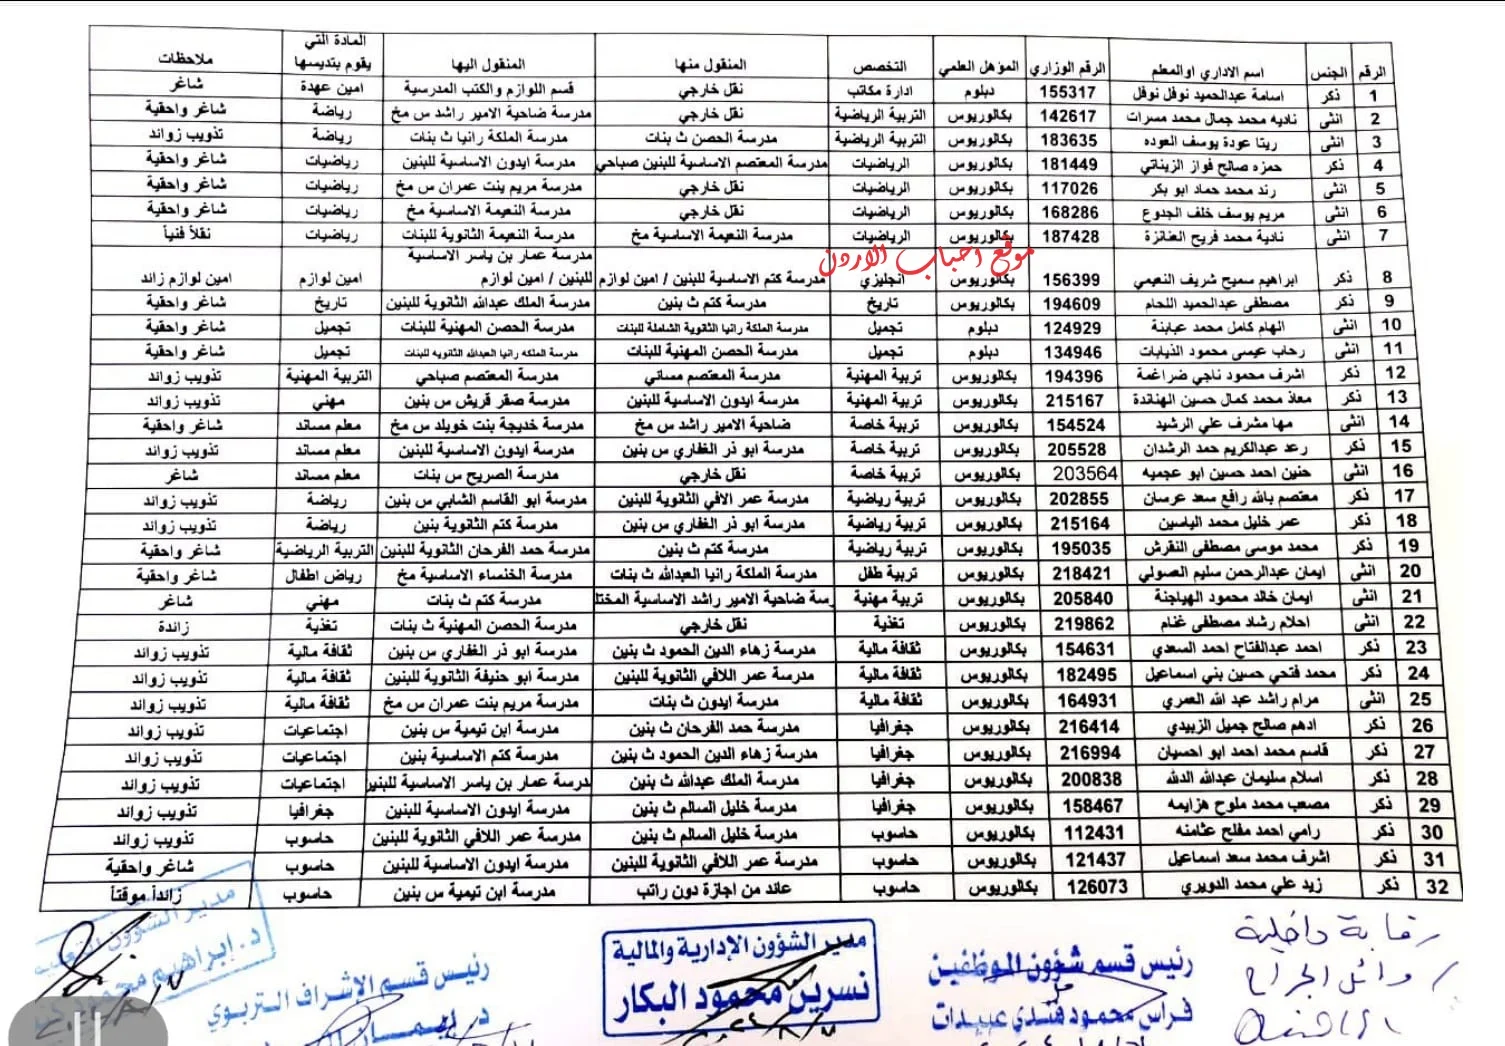 الرقم الجنس اسم الاداري اوالمعلم الرقم الوزاري المؤهل العلمي التخصص المنقول منها المنقول اليها المادة التي يقوم بتديسها ملاحظات
1 ذكر اسامة عبدالحميد نوفل نوفل 155317 دبلوم ادارة مكاتب نقل خارجي قسم اللوازم والكتب المدرسية امين عهدة شاغر
2 انثى ناديه محمد جمال محمد مسرات 142617 بكالوريوس التربية الرياضية نقل خارجي مدرسة ضاحية الامير راشد س مخ رياضة شاغر واحقية
3 انثى ريتا عودة يوسف العوده 183635 بكالوريوس التربية الرياضية مدرسة الحصن ث بنات مدرسة الملكة رانيا ث بنات رياضة تذويب زوائد
4 ذكر حمزه صالح فواز الزيناتي 181449 بكالوريوس الرياضيات مدرسة المعتصم الاساسية للبنين صباحي مدرسة ايدون الاساسية للبنين رياضيات شاغر واحقية
5 انثى رند محمد حماد ابو بكر 117026 بكالوريوس الرياضيات نقل خارجي مدرسة مريم بنت عمران س مخ رياضيات شاغر واحقية
6 انثى مريم يوسف خلف الجدوع 168286 بكالوريوس الرياضيات نقل خارجي مدرسة النعيمة الاساسية مخ رياضيات شاغر واحقية
7 انثى نادية محمد فريح العنانزة 187428 بكالوريوس الرياضيات مدرسة النعيمة الاساسية مخ مدرسة النعيمة الثانوية للبنات رياضيات نقلاً فنياً
موقع احباب الاردن
8 ذكر ابراهيم سميح شريف النعيمي 156399 بكالوريوس انجليزي مدرسة كتم الاساسية للبنين / امين لوازم مدرسة عمار بن ياسر الاساسية للبنين / امين لوازم امين لوازم امين لوازم زائد
9 ذكر مصطفى عبدالحميد اللحام 194609 بكالوريوس تاريخ مدرسة كتم ث بنين مدرسة الملك عبدالله الثانوية للبنين تاريخ شاغر واحقية
10 انثى الهام كامل محمد عبابنة 124929 دبلوم تجميل مدرسة الملكة رانيا الثانوية الشاملة للبنات مدرسة الحصن المهنية للبنات تجميل شاغر واحقية
11 انثى رحاب عيسى محمود الذيابات 134946 دبلوم تجميل مدرسة الحصن المهنية للبنات مدرسة الملكه رانيا العبدالله الثانويه للبنات تجميل شاغر واحقية
12 ذكر اشرف محمود ناجي ضراغمة 194396 بكالوريوس تربية المهنية مدرسة المعتصم مسائي مدرسة المعتصم صباحي التربية المهنية تذويب زوائد
13 ذكر معاذ محمد كمال حسين الهناندة 215167 بكالوريوس تربية المهنية مدرسة ايدون الاساسية للبنين مدرسة صقر قريش س بنين مهني تذويب زوائد
14 انثى مها مشرف علي الرشيد 154524 بكالوريوس تربية خاصة ضاحية الامير راشد س مخ مدرسة خديجة بنت خويلد س مخ معلم مساند شاغر واحقية
15 ذكر رعد عبدالكريم حمد الرشدان 205528 بكالوريوس تربية خاصة مدرسة ابو ذر الغفاري س بنين مدرسة ايدون الاساسية للبنين معلم مساند تذويب زوائد
16 انثى حنين احمد حسين ابو عجميه 203564 بكالوريوس تربية خاصة نقل خارجي مدرسة الصريح س بنات معلم مساند شاغر
17 ذكر معتصم بالله رافع سعد عرسان 202855 بكالوريوس تربية رياضية مدرسة عمر الافي الثانوية للبنين مدرسة ابو القاسم الشابي س بنين رياضة تذويب زوائد
18 ذكر عمر خليل محمد الياسين 215164 بكالوريوس تربية رياضية مدرسة ابو ذر الغفاري س بنين مدرسة كتم الثانوية بنين رياضة تذويب زوائد
19 ذكر محمد موسى مصطفى النقرش 195035 بكالوريوس تربية رياضية مدرسة كتم ث بنين مدرسة حمد الفرحان الثانوية للبنين التربية الرياضية شاغر واحقية
20 انثى ايمان عبدالرحمن سليم الصولي 218421 بكالوريوس تربية طفل مدرسة الملكة رانيا العبدالله ث بنات مدرسة الخنساء الاساسية مخ رياض اطفال شاغر واحقية
21 انثى ايمان خالد محمود الهياجنة 205840 بكالوريوس تربية مهنية رسة ضاحية الامير راشد الاساسية المختلد مدرسة كتم ث بنات مهني شاغر
22 انثى احلام رشاد مصطفى غنام 219862 بكالوريوس تغذية نقل خارجي مدرسة الحصن المهنية ث بنات تغذية زائدة
23 ذكر احمد عبدالفتاح احمد السعدي 154631 بكالوريوس ثقافة مالية مدرسة زهاء الدين الحمود ث بنين مدرسة ابو ذر الغفاري س بنين ثقافة مالية تذويب زوائد
24 ذكر محمد فتحي حسين بني اسماعيل 182495 بكالوريوس ثقافة مالية مدرسة عمر اللافي الثانوية للبنين مدرسة ابو حنيفة الثانوية للبنين ثقافة مالية تذويب زوائد
25 انثى مرام راشد عبد الله العمري 164931 بكالوريوس ثقافة مالية مدرسة ايدون ث بنات مدرسة مريم بنت عمران س مخ ثقافة مالية تذويب زوائد
26 ذكر ادهم صالح جميل الزبيدي 216414 بكالوريوس جغرافيا مدرسة حمد الفرحان ث بنين مدرسة ابن تيمية س بنين اجتماعيات تذويب زوائد
27 ذكر قاسم محمد احمد ابو احسيان 216994 بكالوريوس جغرافيا مدرسة زهاء الدين الحمود ث بنين مدرسة كتم الاساسية بنين اجتماعيات تذويب زوائد
28 ذكر اسلام سليمان عبدالله الدلله 200838 بكالوريوس جغرافيا مدرسة الملك عبدالله ث بنين مدرسة عمار بن ياسر الاساسية للبنين اجتماعيات تذويب زوائد
29 ذكر مصعب محمد ملوح هزايمه 158467 بكالوريوس جغرافيا مدرسة خليل السالم ث بنين مدرسة ايدون الاساسية للبنين جغرافيا تذويب زوائد
30 ذكر رامي احمد مفلح عثامنه 112431 بكالوريوس حاسوب مدرسة خليل السالم ث بنين مدرسة عمر اللافي الثانوية للبنين حاسوب تذويب زوائد
31 ذكر اشرف محمد سعد اسماعيل 121437 بكالوريوس حاسوب مدرسة عمر اللافي الثانوية للبنين مدرسة ايدون الاساسية للبنين حاسوب شاغر واحقية
32 ذكر زيد علي محمد الدويري 126073 بكالوريوس حاسوب عائد من اجازة دون راتب مدرسة ابن تيمية س بنين حاسوب زائداً موقتاً
رقابة داخلية
وائل الجراح
رئيس قسم شؤون الموظفين
فراس محمود فندي عبيدات
مدير الشؤون الإدارية والمالية
نسرين محمود البكار
رئيس قسم الإشراف التربوي
د. إيمان
مدير الشؤون التعليمية
د. إبراهيم محمود